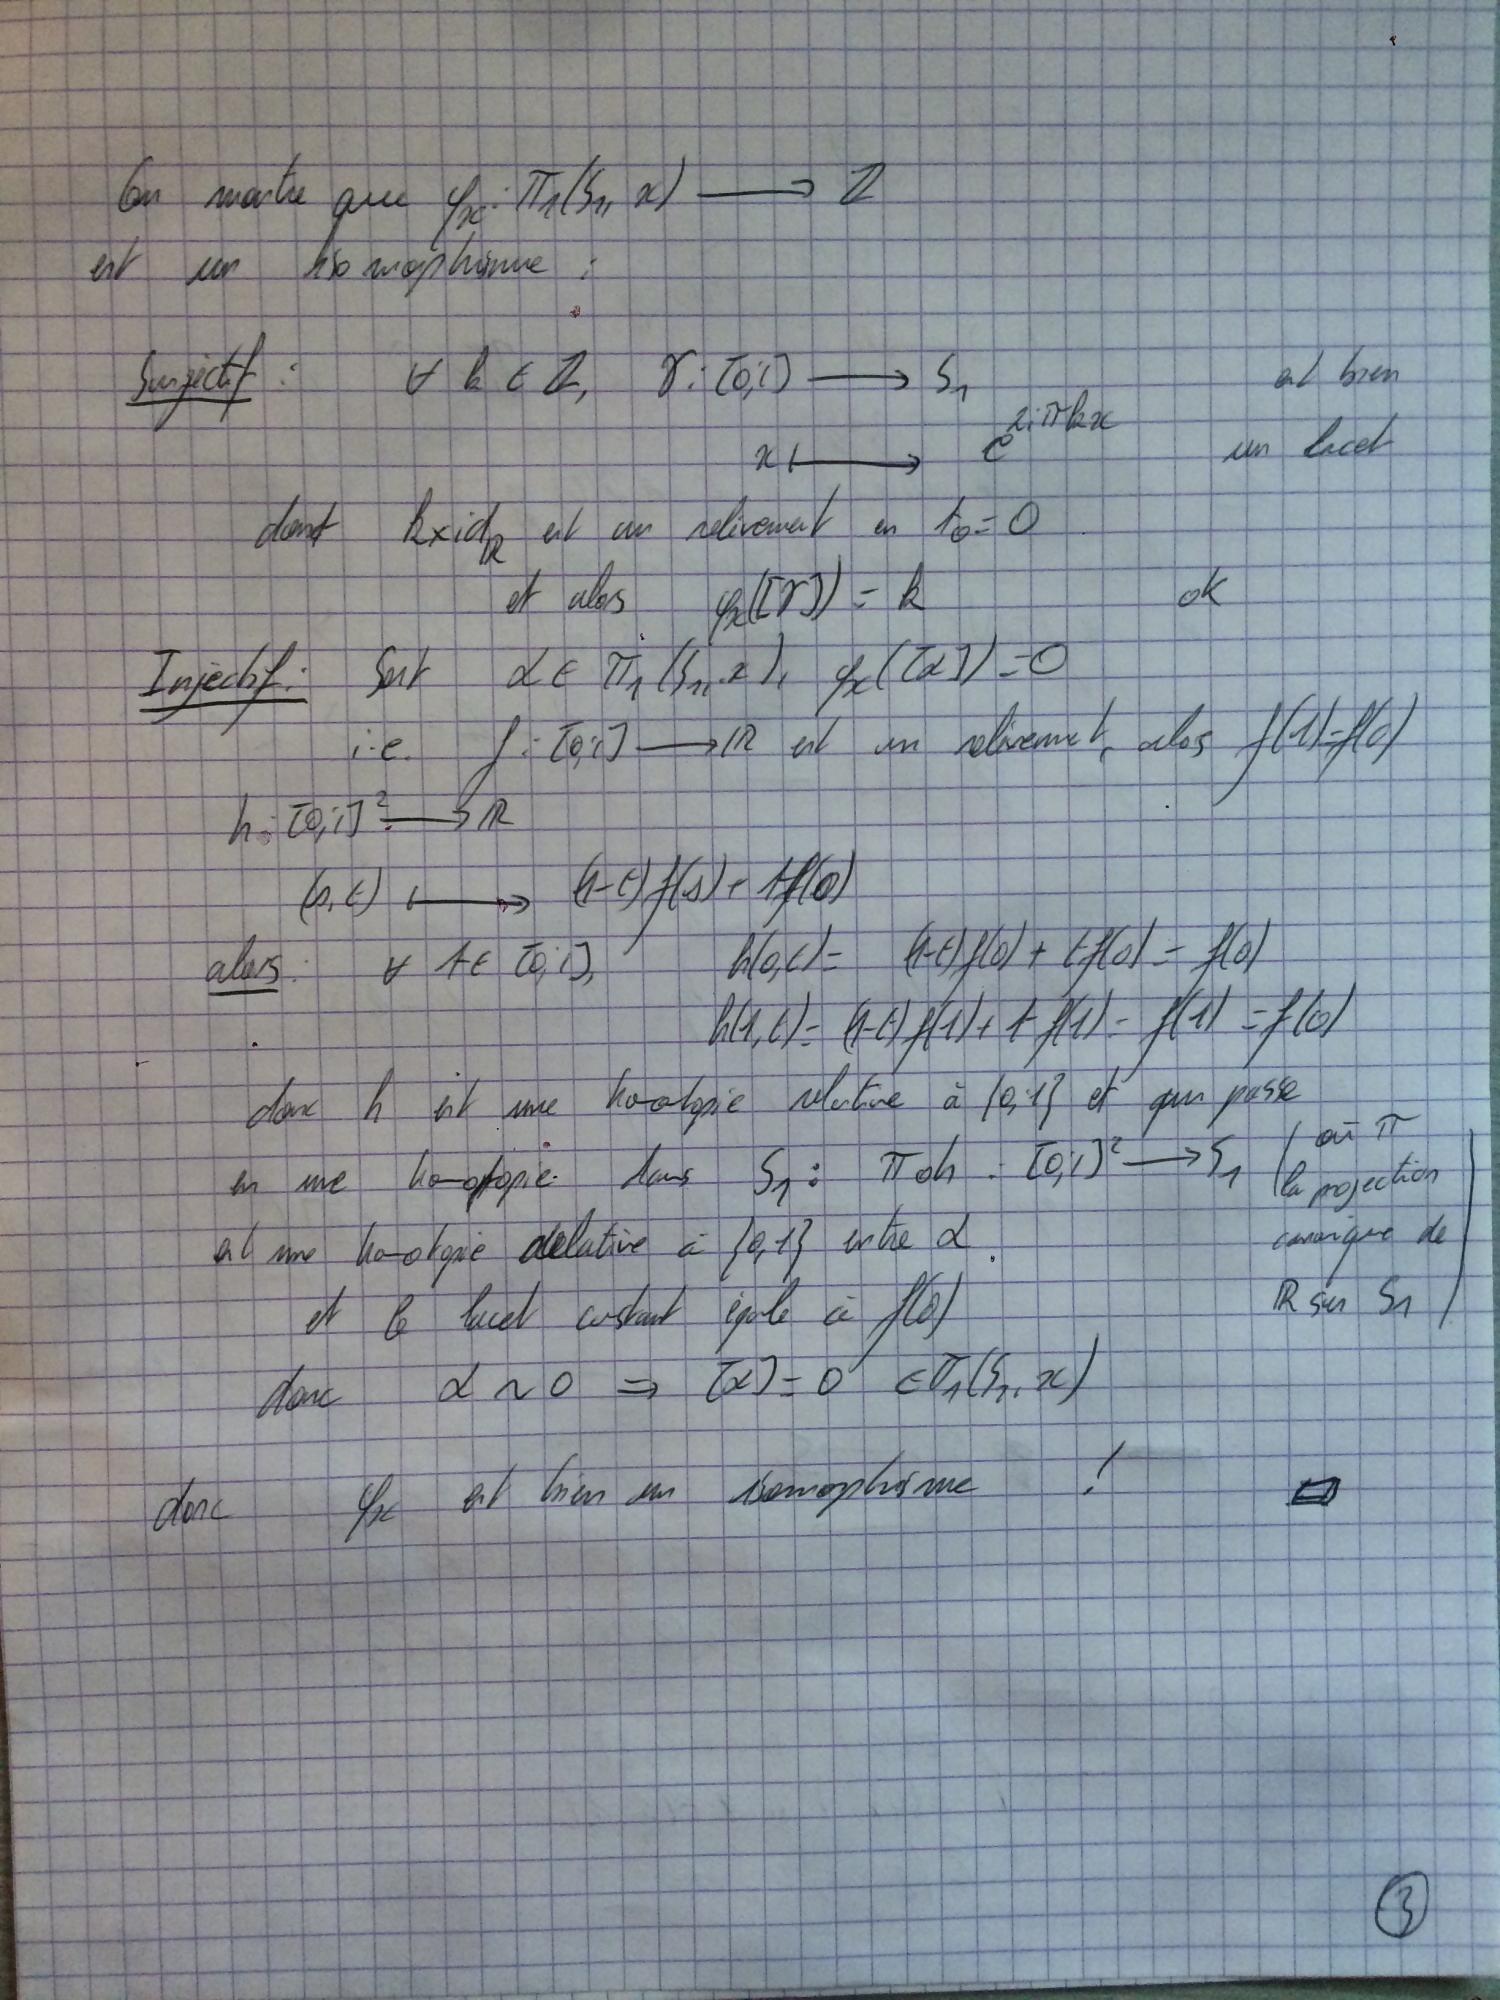 On montre que φₓ : π₁(S₁, x) ⟶ ℤ
est un isomorphisme :
Surjectif : ∀ k ∈ ℤ, γ : [0,1] ⟶ S₁ est bien
x ⟼ e^{2iπkx} un lacet
dont k×id_ℝ est un relèvement en t₀ = 0
et alors φₓ([γ]) = k ok
Injectif : Soit α ∈ π₁(S₁, x), φₓ([α]) = 0
i.e. f : [0,1] ⟶ ℝ est un relèvement, alors f(1) = f(0)
h : [0,1]² ⟶ ℝ
(s,t) ⟼ (1-t) f(s) + t f(0)
alors : ∀ t ∈ [0,1], h(0,t) = (1-t) f(0) + t f(0) = f(0)
h(1,t) = (1-t) f(1) + t f(1) = f(1) = f(0)
donc h est une homotopie relative à {0,1} et qui passe
en une homotopie dans S₁ : π∘h : [0,1]² ⟶ S₁ (où π
la projection
est une homotopie relative à {0,1} entre α
canonique de
et le lacet constant égale à f(0)
ℝ sur S₁)
donc α ~ 0 ⇒ [α] = 0 ∈ π₁(S₁, x)
donc φₓ est bien un isomorphisme ! □
3